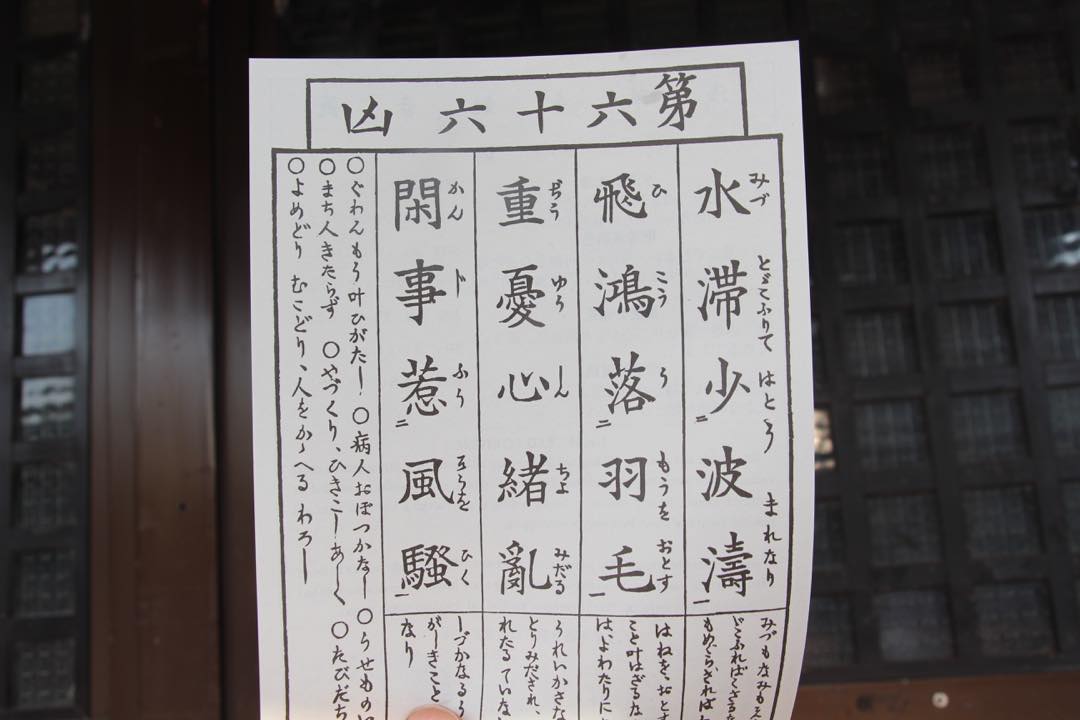 第六十六凶
水滞少二波濤一
みづ とゞこふりて はとう まれなり
みづもなみも
どこふればくさるな
もめぐらざれば
飛鴻落二羽毛一
ひ こう う もうを おとす
はねを、おとす
こと叶はざるな
はよわたりに
重憂心緒亂
ぢう ゆう しん ちよ みだる
うれいかさな
とりみだされ、
れたるていな
閑事惹二風騒一
かん じ ふう そうを ひく
しづかなるう
がしきこと
なり
○ぐわんもう叶ひがたし ○病人おぼつかなし ○うせものい
○まち人きたらず ○やづくり、ひきこしあしく ○たびだち
○よめどり むこどり、人をかゝへる わろし